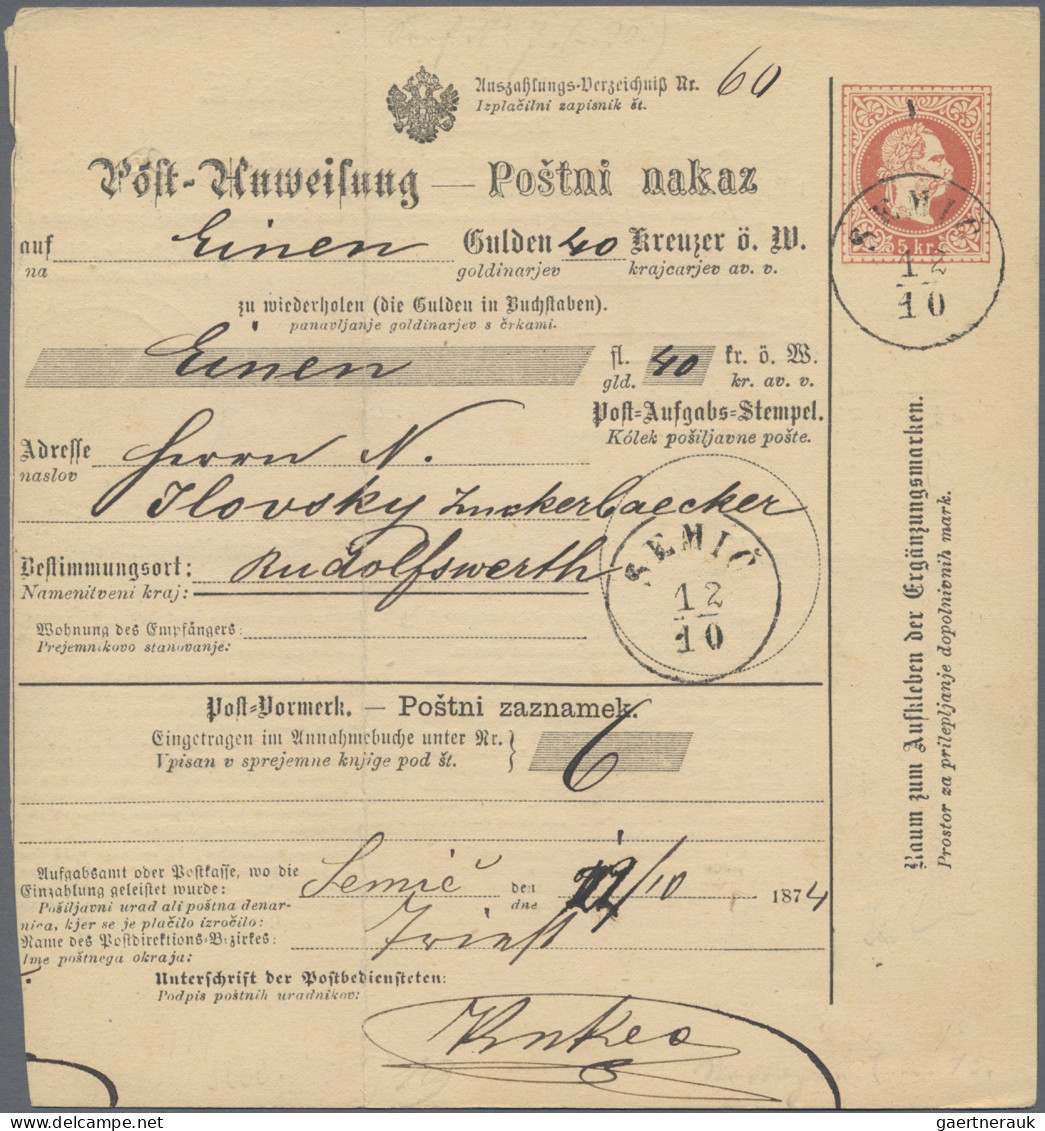 Auszahlungs-Verzeichniß Nr. 60
Izplačilni zapisnik št.
Póst-Anweisung — Poštni nakaz
auf Einen Gulden 40 Kreuzer ö. W.
na goldinarjev krajcarjev av. v.
zu wiederholen (die Gulden in Buchstaben).
panavljanje goldinarjev s črkami.
Einen fl. 40 kr. ö. W.
gld. kr. av. v.
Post-Aufgabs-Stempel.
Kólek pošiljavne pošte.
Adresse Herrn N.
naslov
Ilovsky Zuckerbaecker
Bestimmungsort: Rudolfswerth
Namenitveni kraj:
Wohnung des Empfängers:
Prejemnikovo stanovanje:
SEMIČ
12
10
Post-Vormerk. — Poštni zaznamek.
Eingetragen im Annahmebuche unter Nr. 6
Vpisan v sprejemne knjige pod št.
Aufgabsamt oder Postkasse, wo die
Einzahlung geleistet wurde: Semič den 12/10 1874
Pošiljavni urad ali poštna denar- dne
nica, kjer se je plačilo izročilo:
Name des Postdirektions-Bezirkes: Triest
Ime poštnega okraja:
Unterschrift der Postbediensteten:
Podpis poštnih uradnikov:
5 kr.
SEMIČ
12
10
Raum zum Aufkleben der Ergänzungsmarken.
Prostor za prilepljanje dopolnivnih mark.
gaertnerauk